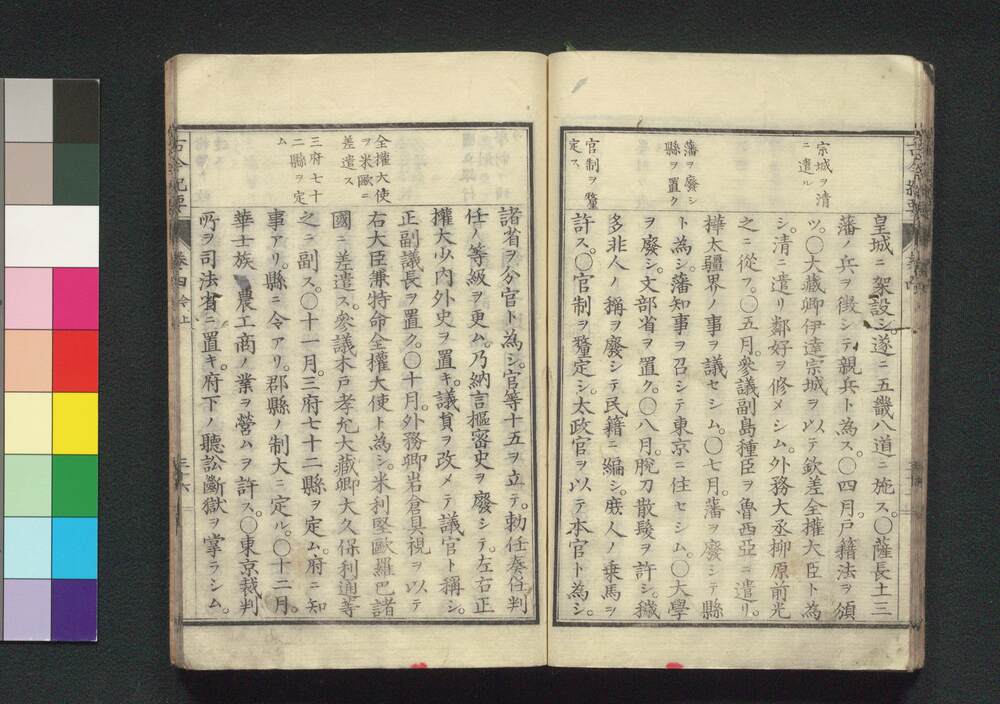 宗城ヲ清
ニ遣ル
藩ヲ廢シ
縣ヲ置ク
官制ヲ釐
定ス
皇城ニ架設シ。遂ニ五畿八道ニ施ス。〇薩長土三
藩ノ兵ヲ徴シテ親兵ト為ス。〇四月。戸籍法ヲ頒
ツ。〇大藏卿伊達宗城ヲ以テ欽差全權大臣ト為
シ。清ニ遣リ鄰好ヲ修メシム。外務大丞柳原前光
之ニ從フ。〇五月。參議副島種臣ヲ魯西亞ニ遣リ。
樺太疆界ノ事ヲ議セシム。〇七月。藩ヲ廢シテ縣
ト為シ。藩知事ヲ召シテ東京ニ住セシム。〇大學
ヲ廢シ。文部省ヲ置ク。〇八月。脫刀散髮ヲ許シ。穢
多非人ノ稱ヲ廢シテ民籍ニ編シ。庶人ノ乗馬ヲ
許ス。〇官制ヲ釐定シ。太政官ヲ以テ本官ト為シ。
全權大使
ヲ米歐ニ
差遣ス
三府七十
二縣ヲ定
ム
諸省ヲ分官ト為シ。官等十五ヲ立テ。勅任奏任判
任ノ等級ヲ更ム。乃納言樞密史ヲ廢シテ。左右正
權大少內外史ヲ置キ。議員ヲ改メテ議官ト稱シ。
正副議長ヲ置ク。〇十月。外務卿岩倉具視ヲ以テ
右大臣兼特命全權大使ト為シ。米利堅歐羅巴諸
國ニ差遣ス。參議木戸孝允大藏卿大久保利通等
之ニ副ス。〇十一月。三府七十二縣ヲ定ム。府ニ知
事アリ。縣ニ令アリ。郡縣ノ制大ニ定ル。〇十二月。
華士族ノ農工商ノ業ヲ營ムヲ許ス。〇東京裁判
所ヲ司法省ニ置キ。府下ノ聽訟斷獄ヲ掌ラシム。
古今紀要
卷四 今上
三十六